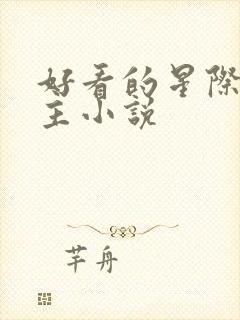 好看的星際
主小說
芊舟